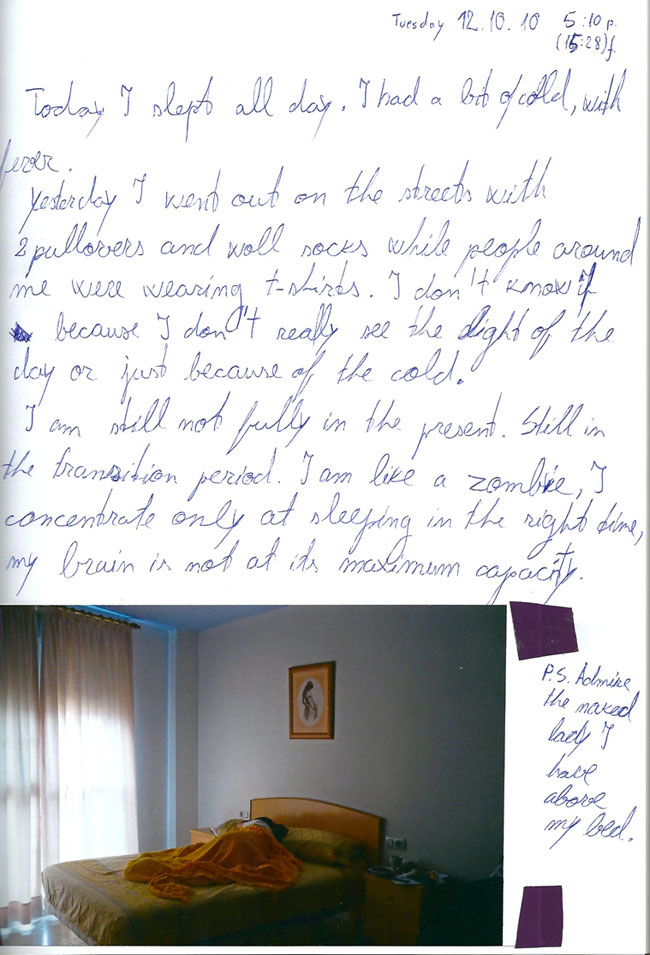 Tuesday 12.10.10 5:10 p.
(15:28) f.
Today I slept all day. I had a bit of cold, with
fever.
Yesterday I went out on the streets with
2 pullovers and woll socks while people around
me were wearing t-shirts. I don't know if
because I don't really see the light of the
day or just because of the cold.
I am still not fully in the present. Still in
the transition period. I am like a zombie, I
concentrate only at sleeping in the right time,
my brain is not at its maximum capacity.
P.S. Admire
the naked
lady I
have
above
my bed.